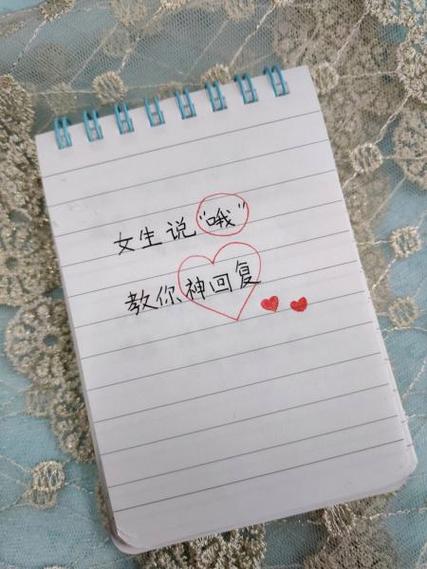 女生说“哦”
教你神回复